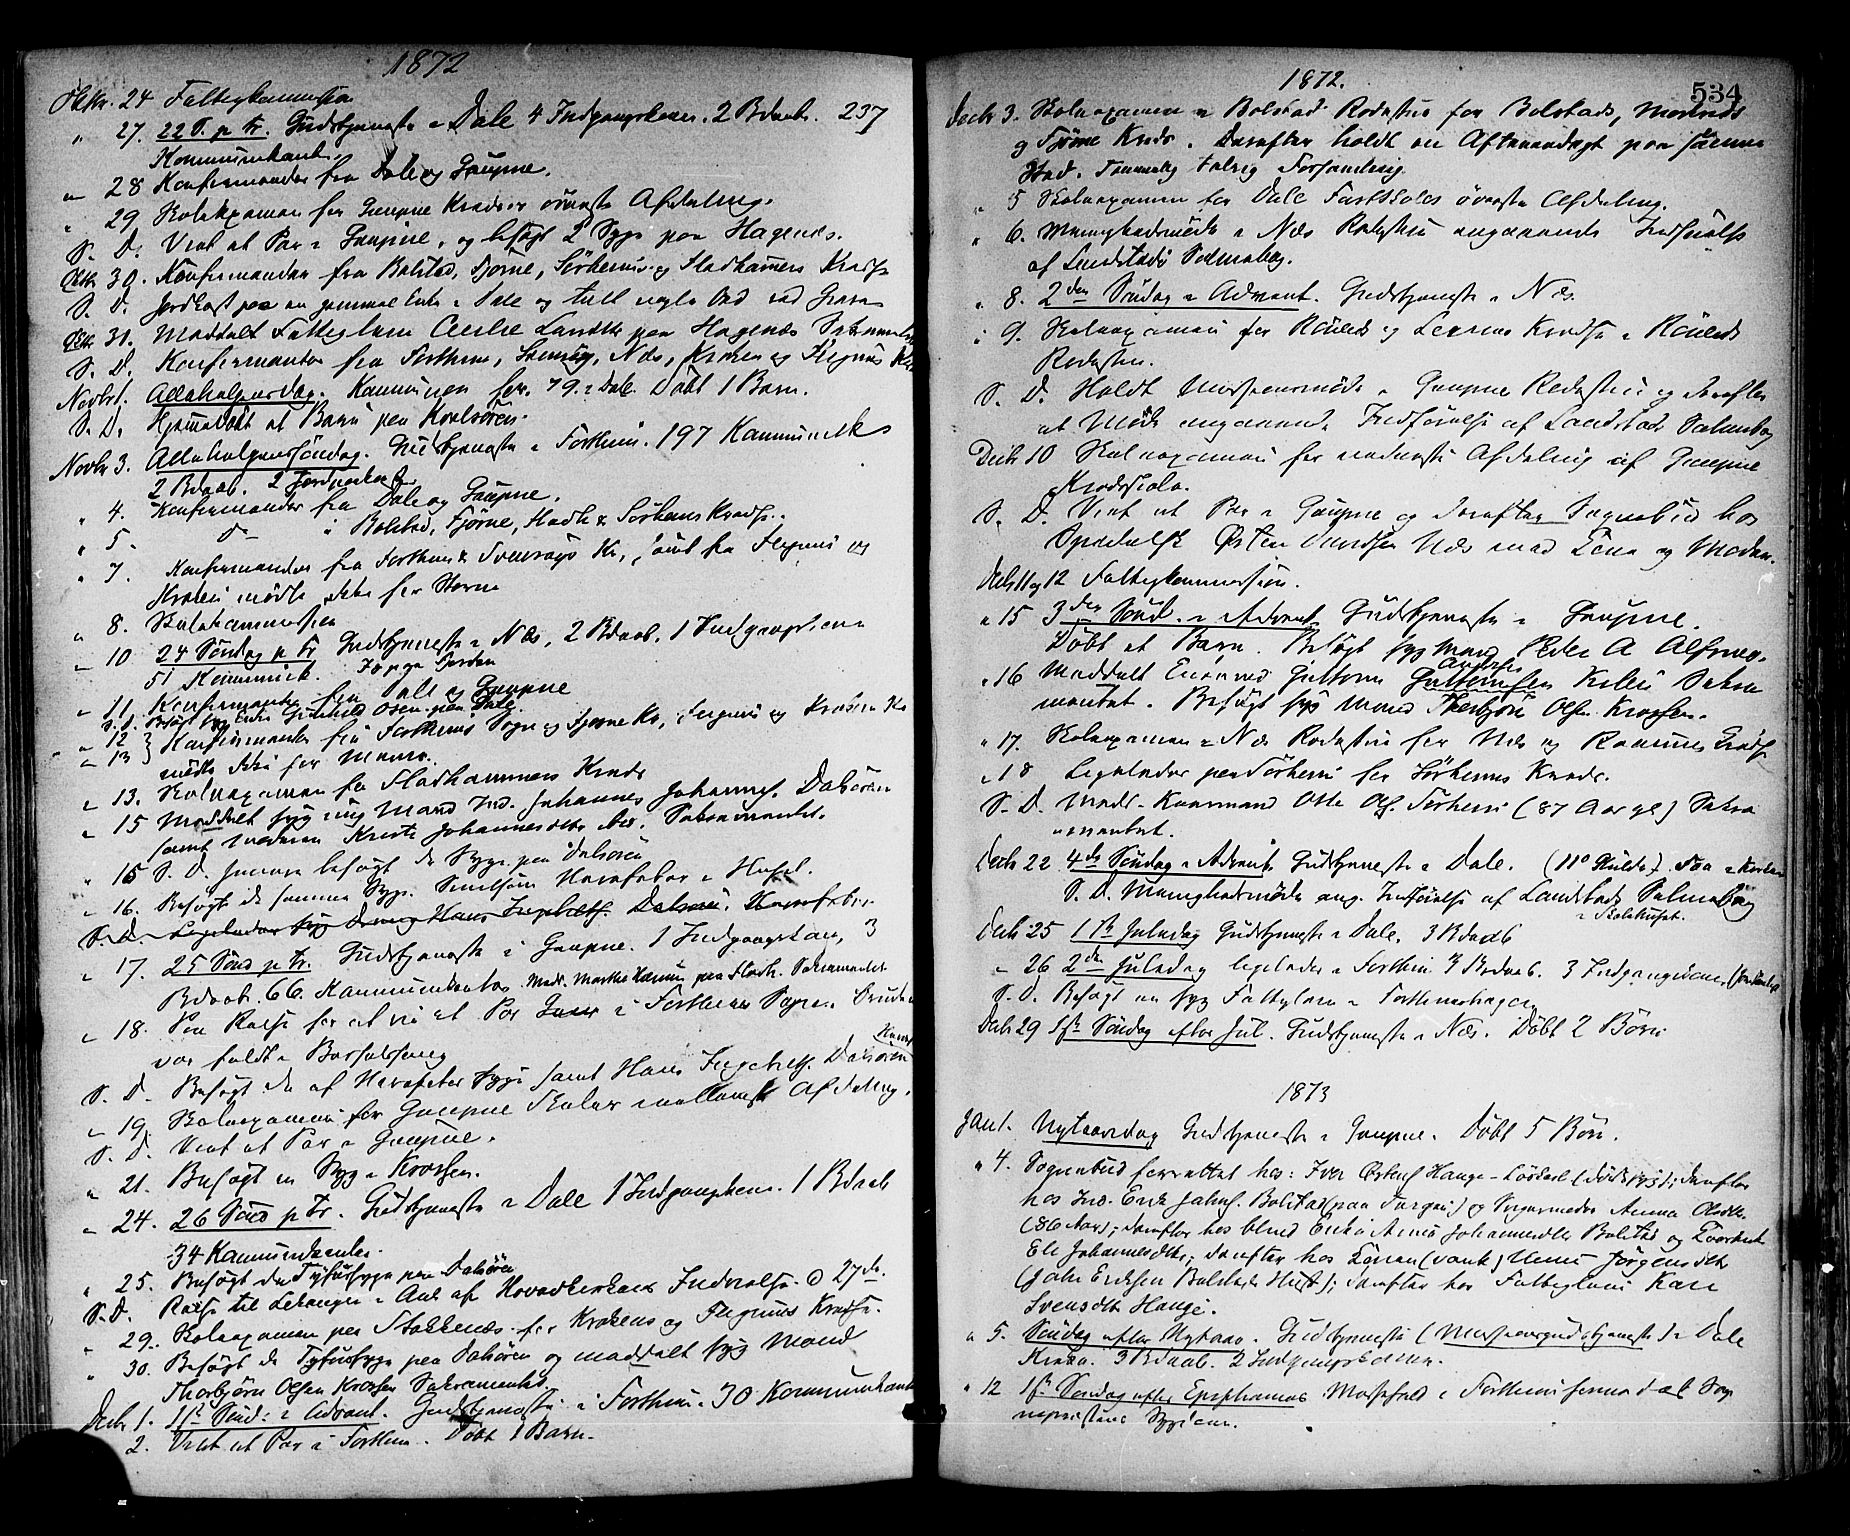 1872
Oktbr. 24 Fattigkommission
" 27. 22 S. p. Tr. Gudstjeneste i Dale 4 Indgangskoner. 2 Bdaab. 237
Kommunikanter.
" 28 Konfirmander fra Dale og Gaupne.
" 29 Skoleexamen for Gaupne Kredses øverste Afdeling.
S. D. Viet et Par i Gaupne, og besøgt 2 Syge paa Hagenæs.
Oktbr 30. Konfirmander fra Bolstad, Fjørne, Sørheim og Fladhamers Kreds
S. D. Jordkast paa en gammel Enke i Dale og talt nogle Ord ved Graven
Oktbr. 31. Meddelt Fattiglem paa Hagenæs Sakramentet
S. D. Konfirmanter fra Forthun, Svensøy, Næs, Kroken og Flegnæs
Novbr 1. Allehelgensdag. Kommunion for. 79. i Dale. Døbt 1 Barn.
S. D. Hjemmedøbt et Barn paa Kvalsøren.
Novbr 3. Allehelgenssøndag. Gudstjeneste i Forthun. 197 Kommunik
2 Bdaab. 2 Jordpaakast
" 4. Konfirmander fra Dale og Gaupne.
" 5. do i Bolstad, Fjørne, Hadh & Sørheims Kreds.
" 7. Konfirmander fra Forthuns & Svensøys Kr., samt fra Flegnæs og
Kroken mødte ikke for Storm
" 8. Skolekommission
" 10 24 Søndag p Tr Gudstjeneste i Næs, 2 Bdaab. 1 Indgangskone
51 Kommunik.
" 11. Konfirmanter fra Dale og Gaupne
S. D. Besøgt syg Enke Gunhild Osen paa Dale.
" 12 } Konfirmander fra Forthuns Sogn og Fjørne Kr, Flegnæs og Kroken Kr
" 13 mødte ikke for
" 13. Skoleexamen fra Fladhammers Kreds
" 15 Meddelt syg ung Mand Ind. Johannes Johannes. Dalsøren
samt Moderen Kristi Johannesdtr Sakramentet.
" 15 S. D. besøgt de Syge paa Dalsøren
" 16. Besøgt de samme Syge. Nervefeber i Huset.
S. D. Ligeledes syg Dreng Hans Ingebrets. Dalsøren. Nervefeber
" 17. 25 Sønd p Tr. Gudstjeneste i Gaupne. 1 Indgangskone, 3
Bdaab. 66. Kommunikanter Sakramentet
" 18. Paa Reise for at vie et Par i Forthuns Sogn. Bruden
var faldt i Barselseng
S. D. Besøgt de af Nervefeber syge samt Hans Ingebrets. Dalsøren
" 19. Skoleexamen for Gaupne Skoles mellemste Afdeling.
S. D. Viet et Par i Gaupne.
" 21. Besøgt en Syg i Kroken.
" 24. 26 Sønd p Tr. Gudstjeneste i Dale 1 Indgangskone. 1 Bdaab
34 Kommunikanter.
" 25. Besøgt de Tyfussyge paa Dalsøren
S. D. Reise til Lekanger i Anl af Hovedkirkens Indvielse d 27de.
" 29. Skoleexamen paa Stokkenæs for Krokens og Flegnæs Kredse.
" 30. Besøgt de Tyfussyge paa Dalsøren og meddelt syg Mand
Thorbjørn Olsen Kroken Sakramentet.
Decbr 1. 1ste Sønd: i Advent. Gudstjeneste i Forthun. 30 Kommunikanter
2. Viet et Par i Forthun. Døbt 1 Barn.
1872.
534
Decbr 3. Skoleexamen i Bolstad Rodestue for Bolstads,
og Fjørne Kreds. Derefter holdt en Aftenandagt paa samme
Sted. Temmelig talrig Forsamling.
" 5 Skoleexamen for Dale Fastskoles øverste Afdeling.
" 6. Menighedsmøde i Næs Rodestue angaaende Indførelse
af Landstads Salmebog.
" 8. 2den Søndag i Advent. Gudstjeneste i Næs.
" 9. Skoleexamen for Røneids og Leirmo Kredse i Røneids
Rodestue.
S. D. Holdt Missionsmøde i Gaupne Rodestue og derefter
et Møde angaaende Indførelse af Landstads Salmebog
Decbr 10 Skoleexamen for nederste Afdeling af Gaupne
Kredsskole.
S. D. Viet et Par i Gaupne og derefter Sognebud hos
Opsidder Østen Næs med Kone og Moder.
Decbr 11 og 12 Fattigkommission.
" 15 3den Sønd. i Advent Gudstjeneste i Gaupne.
Døbt et Barn. Besøgt syg Mand Peder A Alsmo.
" 16 Meddelt Guttorm Guttormsen Sakra
mentet. Besøgt syg Mand Thorbjørn Olsen Kroken.
" 17. Skoleexamen i Næs Rodestue for Næs og Kredse
" 18 Ligeledes paa Sørheim for Sørheims Kreds.
S. D. Medd. Kaarmand Otte Ols. Sørheim (87 Aar gl) Sakra
mentet.
Decbr 22 4de Søndag i Advent Gudstjeneste i Dale. (11° Kulde). Faa i Kirken
S. D. Menighedsmøde ang. Indførelse af Landstads Salmebog
i Skolehuset.
Decbr 25 1ste Juledag Gudstjeneste i Dale. 3 Bdaab
" 26 2den Juledag ligeledes i Forthun 4 Bdaab. 3 Indgangskoner.
S. D. Besøgt en syg Fattiglem i Forthunshagen
Decbr 29 1ste Søndag efter Jul. Gudstjeneste i Næs. Døbt 2 Børn
1873
Jan 1. Nytaarsdag Gudstjeneste i Gaupne. Døbt 5 Børn.
" 4. Sognebud forrettet hos: Iver Østens Hauge derefter
hos Ind. Erik Johns. Bolstad (paa Turgen) og Svigermoder Anna Olsdtr.
(86 Aar); derefter hos blind Enke Anna Johannesdtr Bolstad og
Eli Johannesdtr; derefter hos Konen Unni Jørgensdtr
(John Eriksen Bolstads Hust); derefter hos Fattiglem Kari
Svensdtr Hauge.
" 5. Søndag efter Nytaar. Gudstjeneste (Missionsgudstjeneste) i Dale
Kirke. 3 Bdaab. 2 Indgangskoner.
" 12 1ste Søndag efter Epiphanias Messefald i Forthun formedelst Sog
nepræstens Sygdom.